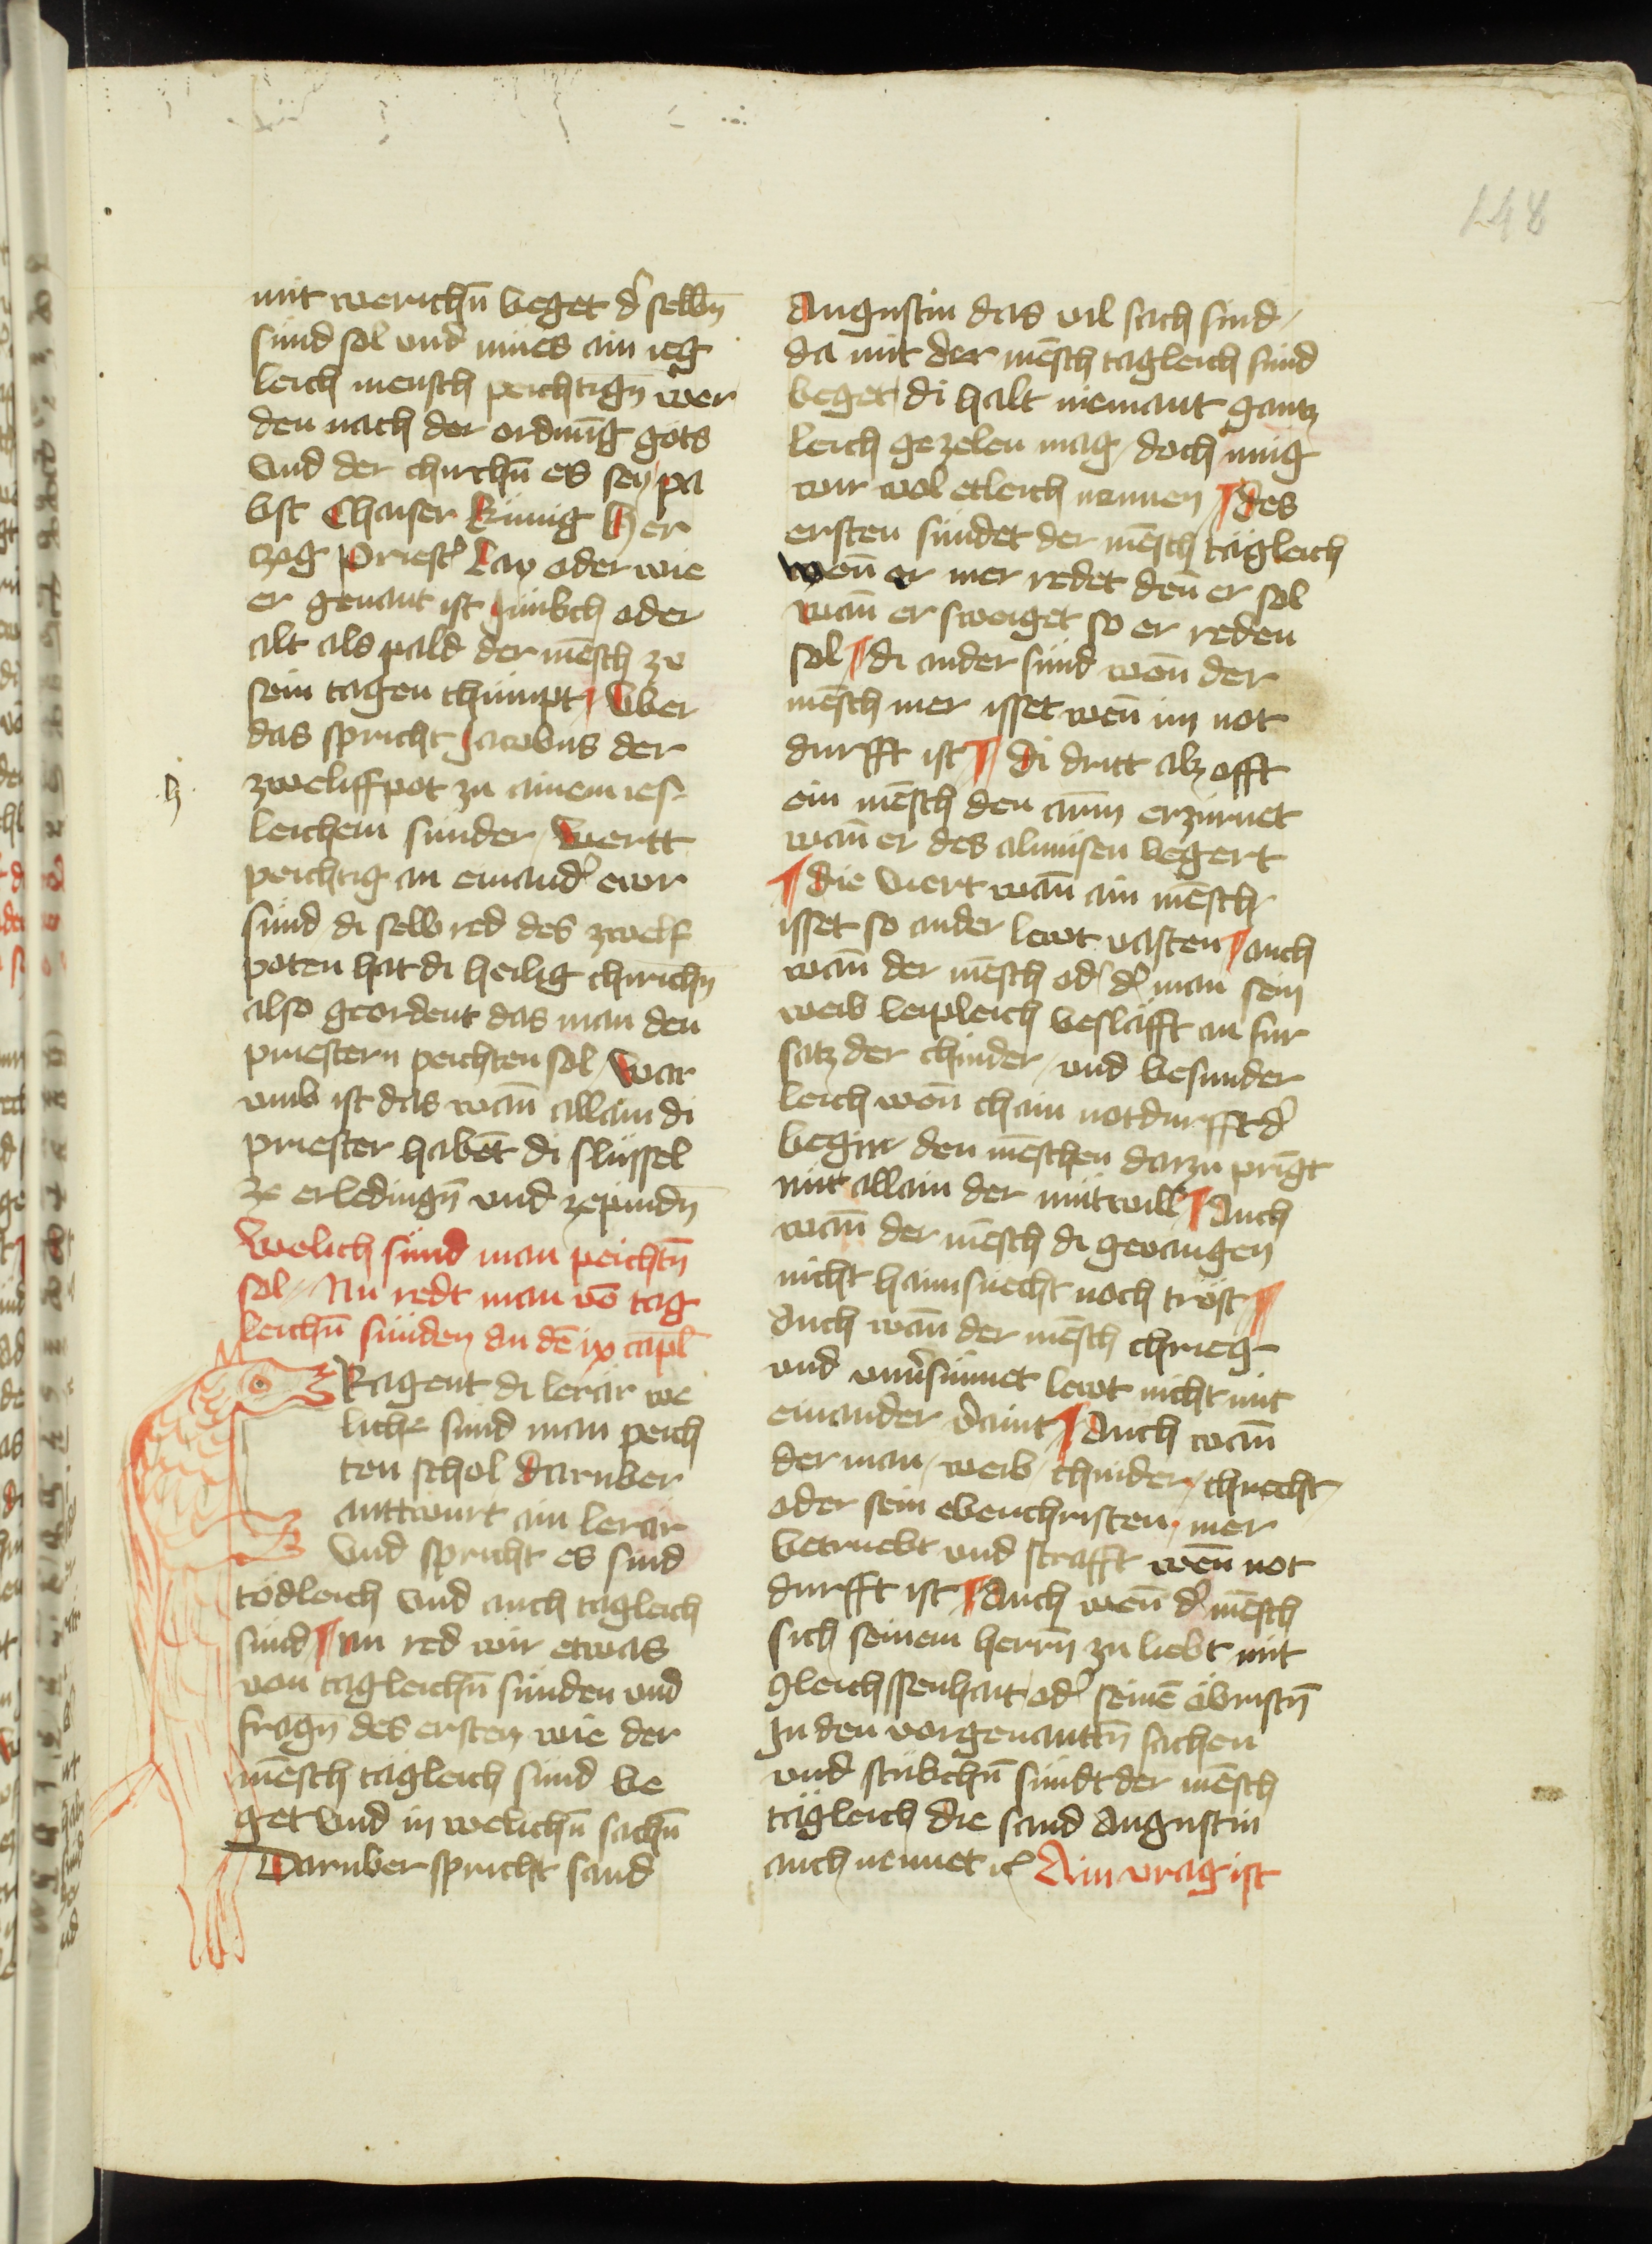 148
mit werichn̄ beget d' selbn̄
sund sol und mues ain ieg
leich mensch peichtign̄ wer
den nach der ordnūg gots
Vnd der chirchn̄ es sey pa
bst Chaiser Künig Her
zog Priest' Lay oder wie
er genant ist Junkch oder
alt als pald der mēsch ze
sein tagen chumpt Vber
das spricht Jacobus der
h
zweliffpot zu ainem ies
leichem sunder Wertt
peichtig an einand' ewr
sund di selb red des zwelf
poten hat di heilig chirichn̄
also geordent das man den
priestern peichten sol War
vmb ist das wan̄ allain di
priester habēt di slüssel
ze erledingn̄ vnd ze pindn̄
Welich sünd man peichtn̄
sol Nu redt man vō tag
leichn̄ sünden an dē ix capl̄
Ragent di lerär we
liche sünd man peich
ten schol darüber
anttwurt ain lerär
Vnd spricht es sind
tödleich Vnd auch tägleich
sünd nu red wir etwas
von tagleichn̄ sünden vnd
fragn̄ des ersten wie der
mēsch tägleich sünd be
get Vnd in welichn̄ sachn̄
Daruber spricht sand
Augustin das vil sach sind
da mit der mēsch tagleich sund
beget di halt niemant gantz
leich gezelen mag doch mug
wir wol etleich nennen des
ersten sündet der mēsch tägleich
wen̄ er mer redet den̄ er sol
wan̄ er sweiget so er reden
sol di ander sünd wen̄ der
mēsch mer isset wen̄ im not
durfft ist di dritt alz offt
ein mēsch den arm̄ erzürnet
wan̄ er des almusen begert
die viert wan̄ ain mēsch
isset so ander lewt vasten auch
wan̄ der mēsch od' d' man sein
weib leipleich beslafft an fur
satz der chinder vnd besunder
leich wen̄ chain notdurfft d'
begirr den mēschen darzu pringt
nür allain der mütwill Auch
wan̄ der mēsch di gevangen
nicht haimsuecht noch tröst
Auch wan̄ der mēsch chrieg
vnd vnv'sünnet lewt nicht mit
einander v'aint Auch wan̄
der man weib chinder chnecht
oder sein ebenchristen mer
betruebt vnd strafft wen̄ not
durfft ist Auch wen̄ d' mēsch
sich seinem herrn̄ zu liebt mit
gleichssenhait od' seinē öbristn̄
In den vorgenanttn̄ sachen
vnd stükchn̄ sündt der mēsch
tägleich die sand Augustin
auch nennet ꝛc Ain vrag ist